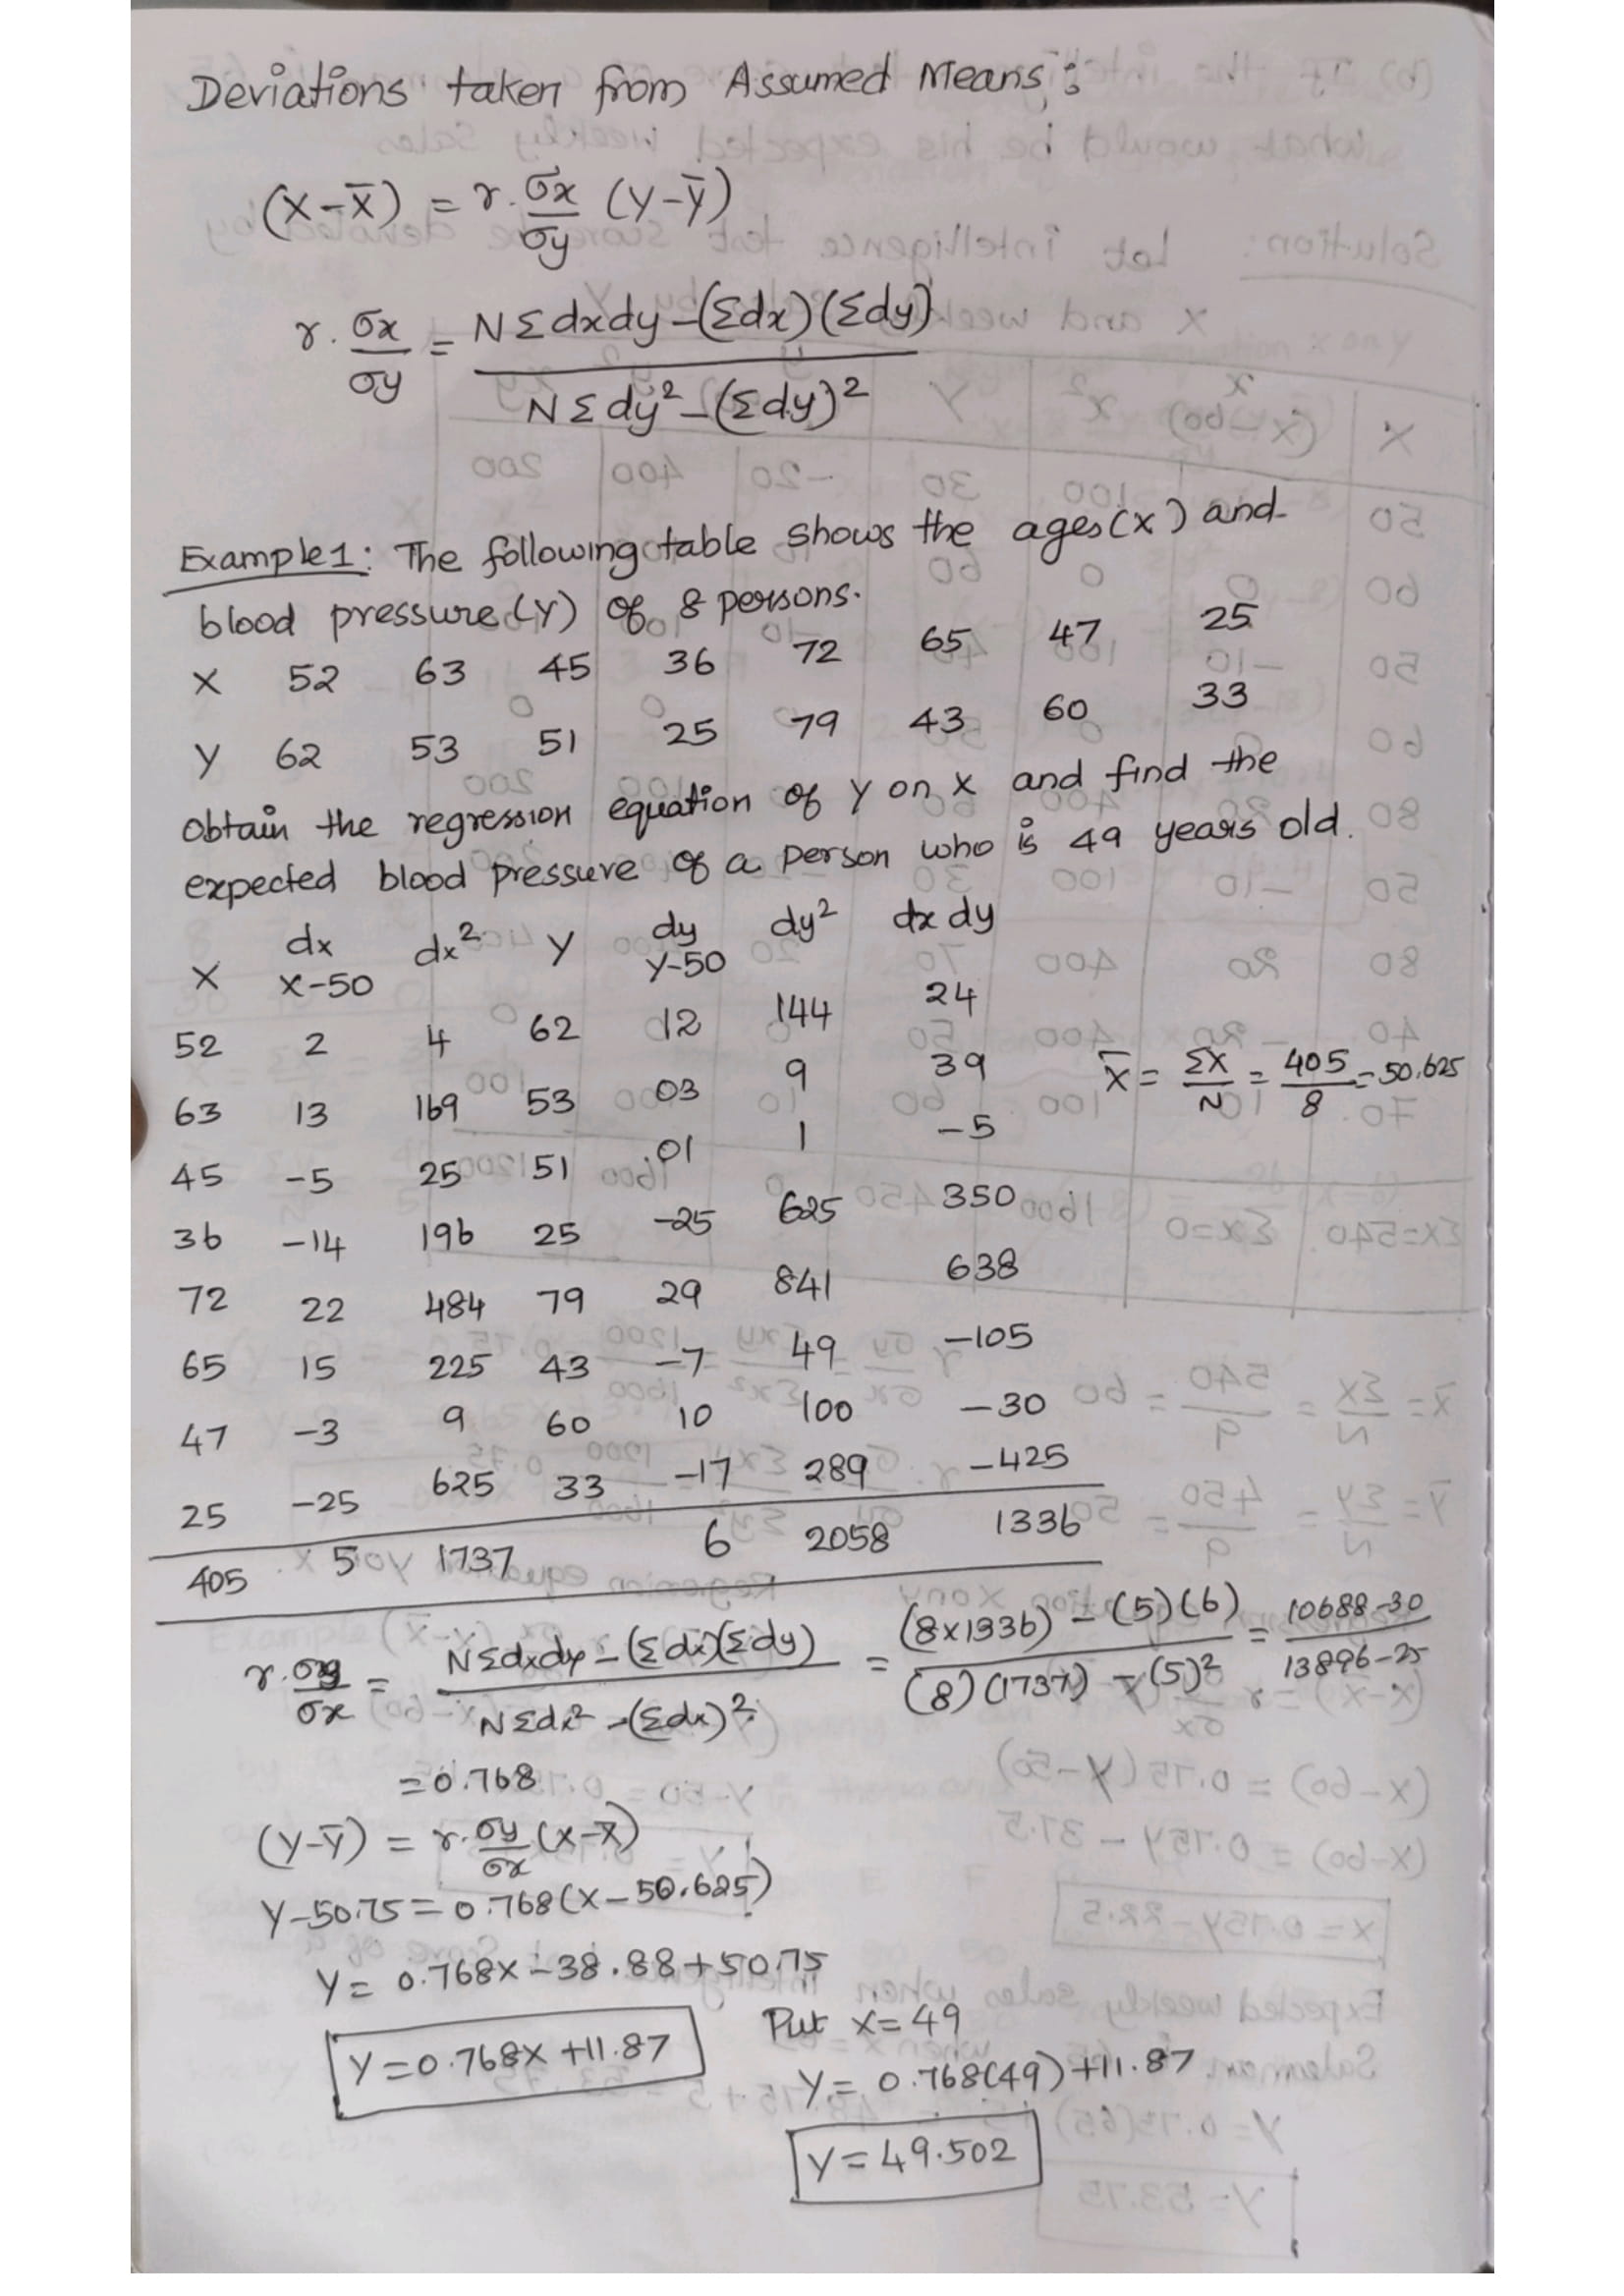 Deviations taken from Assumed Means:
(X-X̄) = r. σx/σy (Y-Ȳ)
r. σx/σy = NΣdxdy-(Σdx)(Σdy) / NΣdy²-(Σdy)²
Example1: The following table shows the ages(x) and
blood pressure(Y) of 8 persons.
X 52 63 45 36 72 65 47 25
Y 62 53 51 25 79 43 60 33
obtain the regression equation of Y on X and find the
expected blood pressure of a person who is 49 years old.
X dx X-50 dx² Y dy Y-50 dy² dx dy
52 2 4 62 12 144 24
63 13 169 53 03 9 39 X̄ = ΣX/N = 405/8 = 50.625
45 -5 25 51 01 1 -5
36 -14 196 25 -25 625 350
72 22 484 79 29 841 638
65 15 225 43 -7 49 -105
47 -3 9 60 10 100 -30
25 -25 625 33 -17 289 -425
405 5 1737 6 2058 1336
r. σy/σx = NΣdxdy-(Σdx)(Σdy) / NΣdx²-(Σdx)² = (8x1336) - (5)(6) / (8)(1737) - (5)² = 10688-30 / 13896-25
= 0.768
(Y-Ȳ) = r. σy/σx (X-X̄)
Y-50.75 = 0.768(X-50.625)
Y = 0.768X-38.88+50.75
Y = 0.768X +11.87
Put X = 49
Y = 0.768(49)+11.87
Y = 49.502